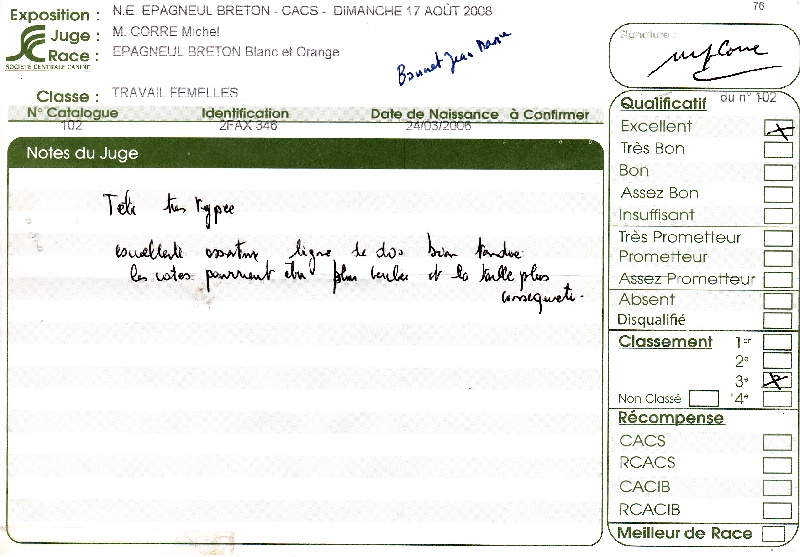 76
Exposition : N.E. EPAGNEUL BRETON - CACS - DIMANCHE 17 AOÛT 2008
Juge : M. CORRE Michel
Race : EPAGNEUL BRETON Blanc et Orange
SOCIÉTÉ CENTRALE CANINE
Bonnet Jean Marie
Signature :
Classe : TRAVAIL FEMELLES
N° Catalogue Identification Date de Naissance à Confirmer
102 2FAX 346 24/03/2006
Notes du Juge
Tête très typée
excellente ossature ligne de dos bien tendue
les cotes pourraient être plus et la taille plus
conséquente.
Qualificatif du n° 102
Excellent
Très Bon
Bon
Assez Bon
Insuffisant
Très Prometteur
Prometteur
Assez Prometteur
Absent
Disqualifié
Classement 1er
2e
3e
Non Classé 4e
Récompense
CACS
RCACS
CACIB
RCACIB
Meilleur de Race